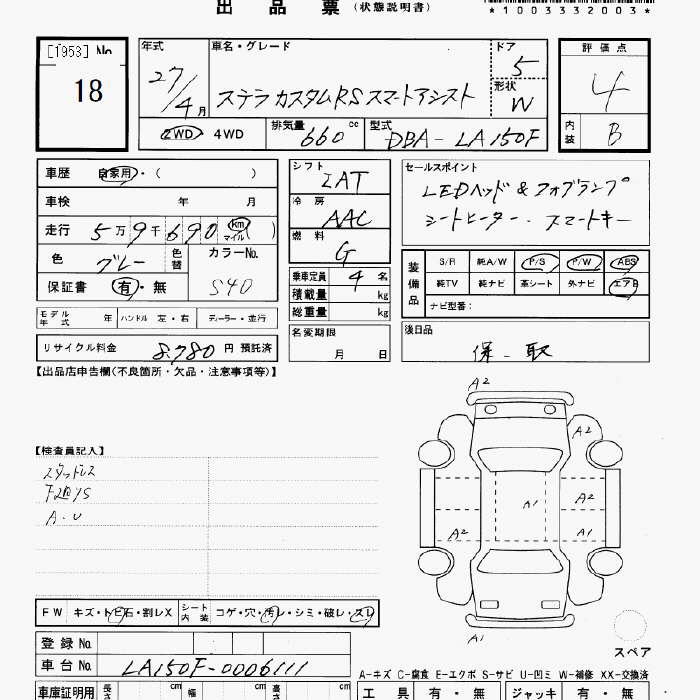 出品票(状態説明書)
*1003332003*
[1953] No.
18
年式 27/4月
車名・グレード ステラ カスタムRS スマートアシスト
ドア 5
形状 W
2WD 4WD
排気量 660 cc
型式 DBA-LA150F
評価点 4
内装 B
車歴 自家用・( )
車検 年 月
走行 5万9千690 km マイル ( )
色 グレー 色替
カラーNo. S40
保証書 有・無
モデル年式 年 ハンドル 左・右 ディーラー・並行
リサイクル料金 8,780 円 預託済
シフト IAT
冷房 AAC
燃料 G
乗車定員 4 名
積載量 kg
総重量 kg
名変期限
月 日
セールスポイント
LEDヘッド & フォグランプ
シートヒーター・スマートキー
装備品
S/R 純A/W P/S P/W ABS
純TV 純ナビ 革シート 外ナビ エアB
ナビ型番:
後日品
保-取
【出品店申告欄(不良箇所・欠品・注意事項等)】
【検査員記入】
スタッドレス
A・U
A2
A2
A1
A2
A2
A1
A1
スペア
FW キズ・トビ石・割レX シート内装 コゲ・穴・汚レ・シミ・破レ・スレ
登録No.
車台No. LA150F-0006111
A-キズ C-腐食 E-エクボ S-サビ U-凹ミ W-補修 XX-交換済
車庫証明用 長さ cm 幅 cm 高さ cm
工具 有・無 ジャッキ 有・無